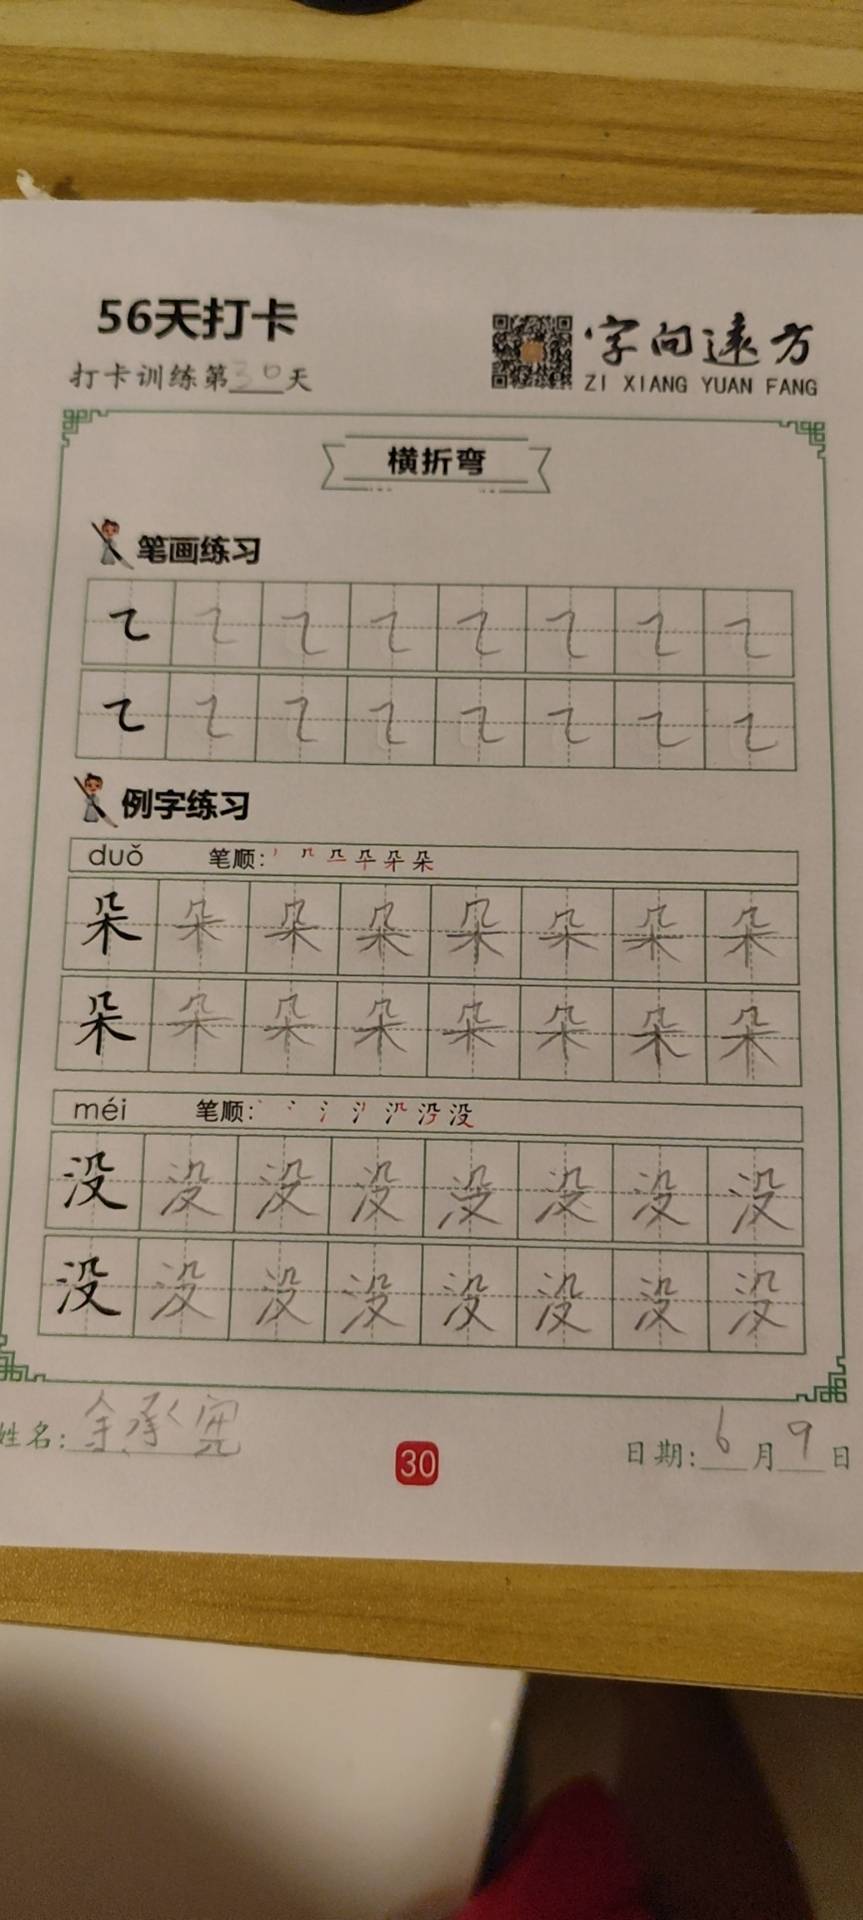 56天打卡
打卡训练第30天
字向远方
ZI XIANG YUAN FANG
横折弯
笔画练习
㇍㇍㇍㇍㇍㇍㇍㇍
㇍㇍㇍㇍㇍㇍㇍㇍
例字练习
duǒ 笔顺:
朵朵朵朵朵朵朵朵
朵朵朵朵朵朵朵朵
méi 笔顺:
没没没没没没没没
没没没没没没没没
姓名:
30
日期:6月9日